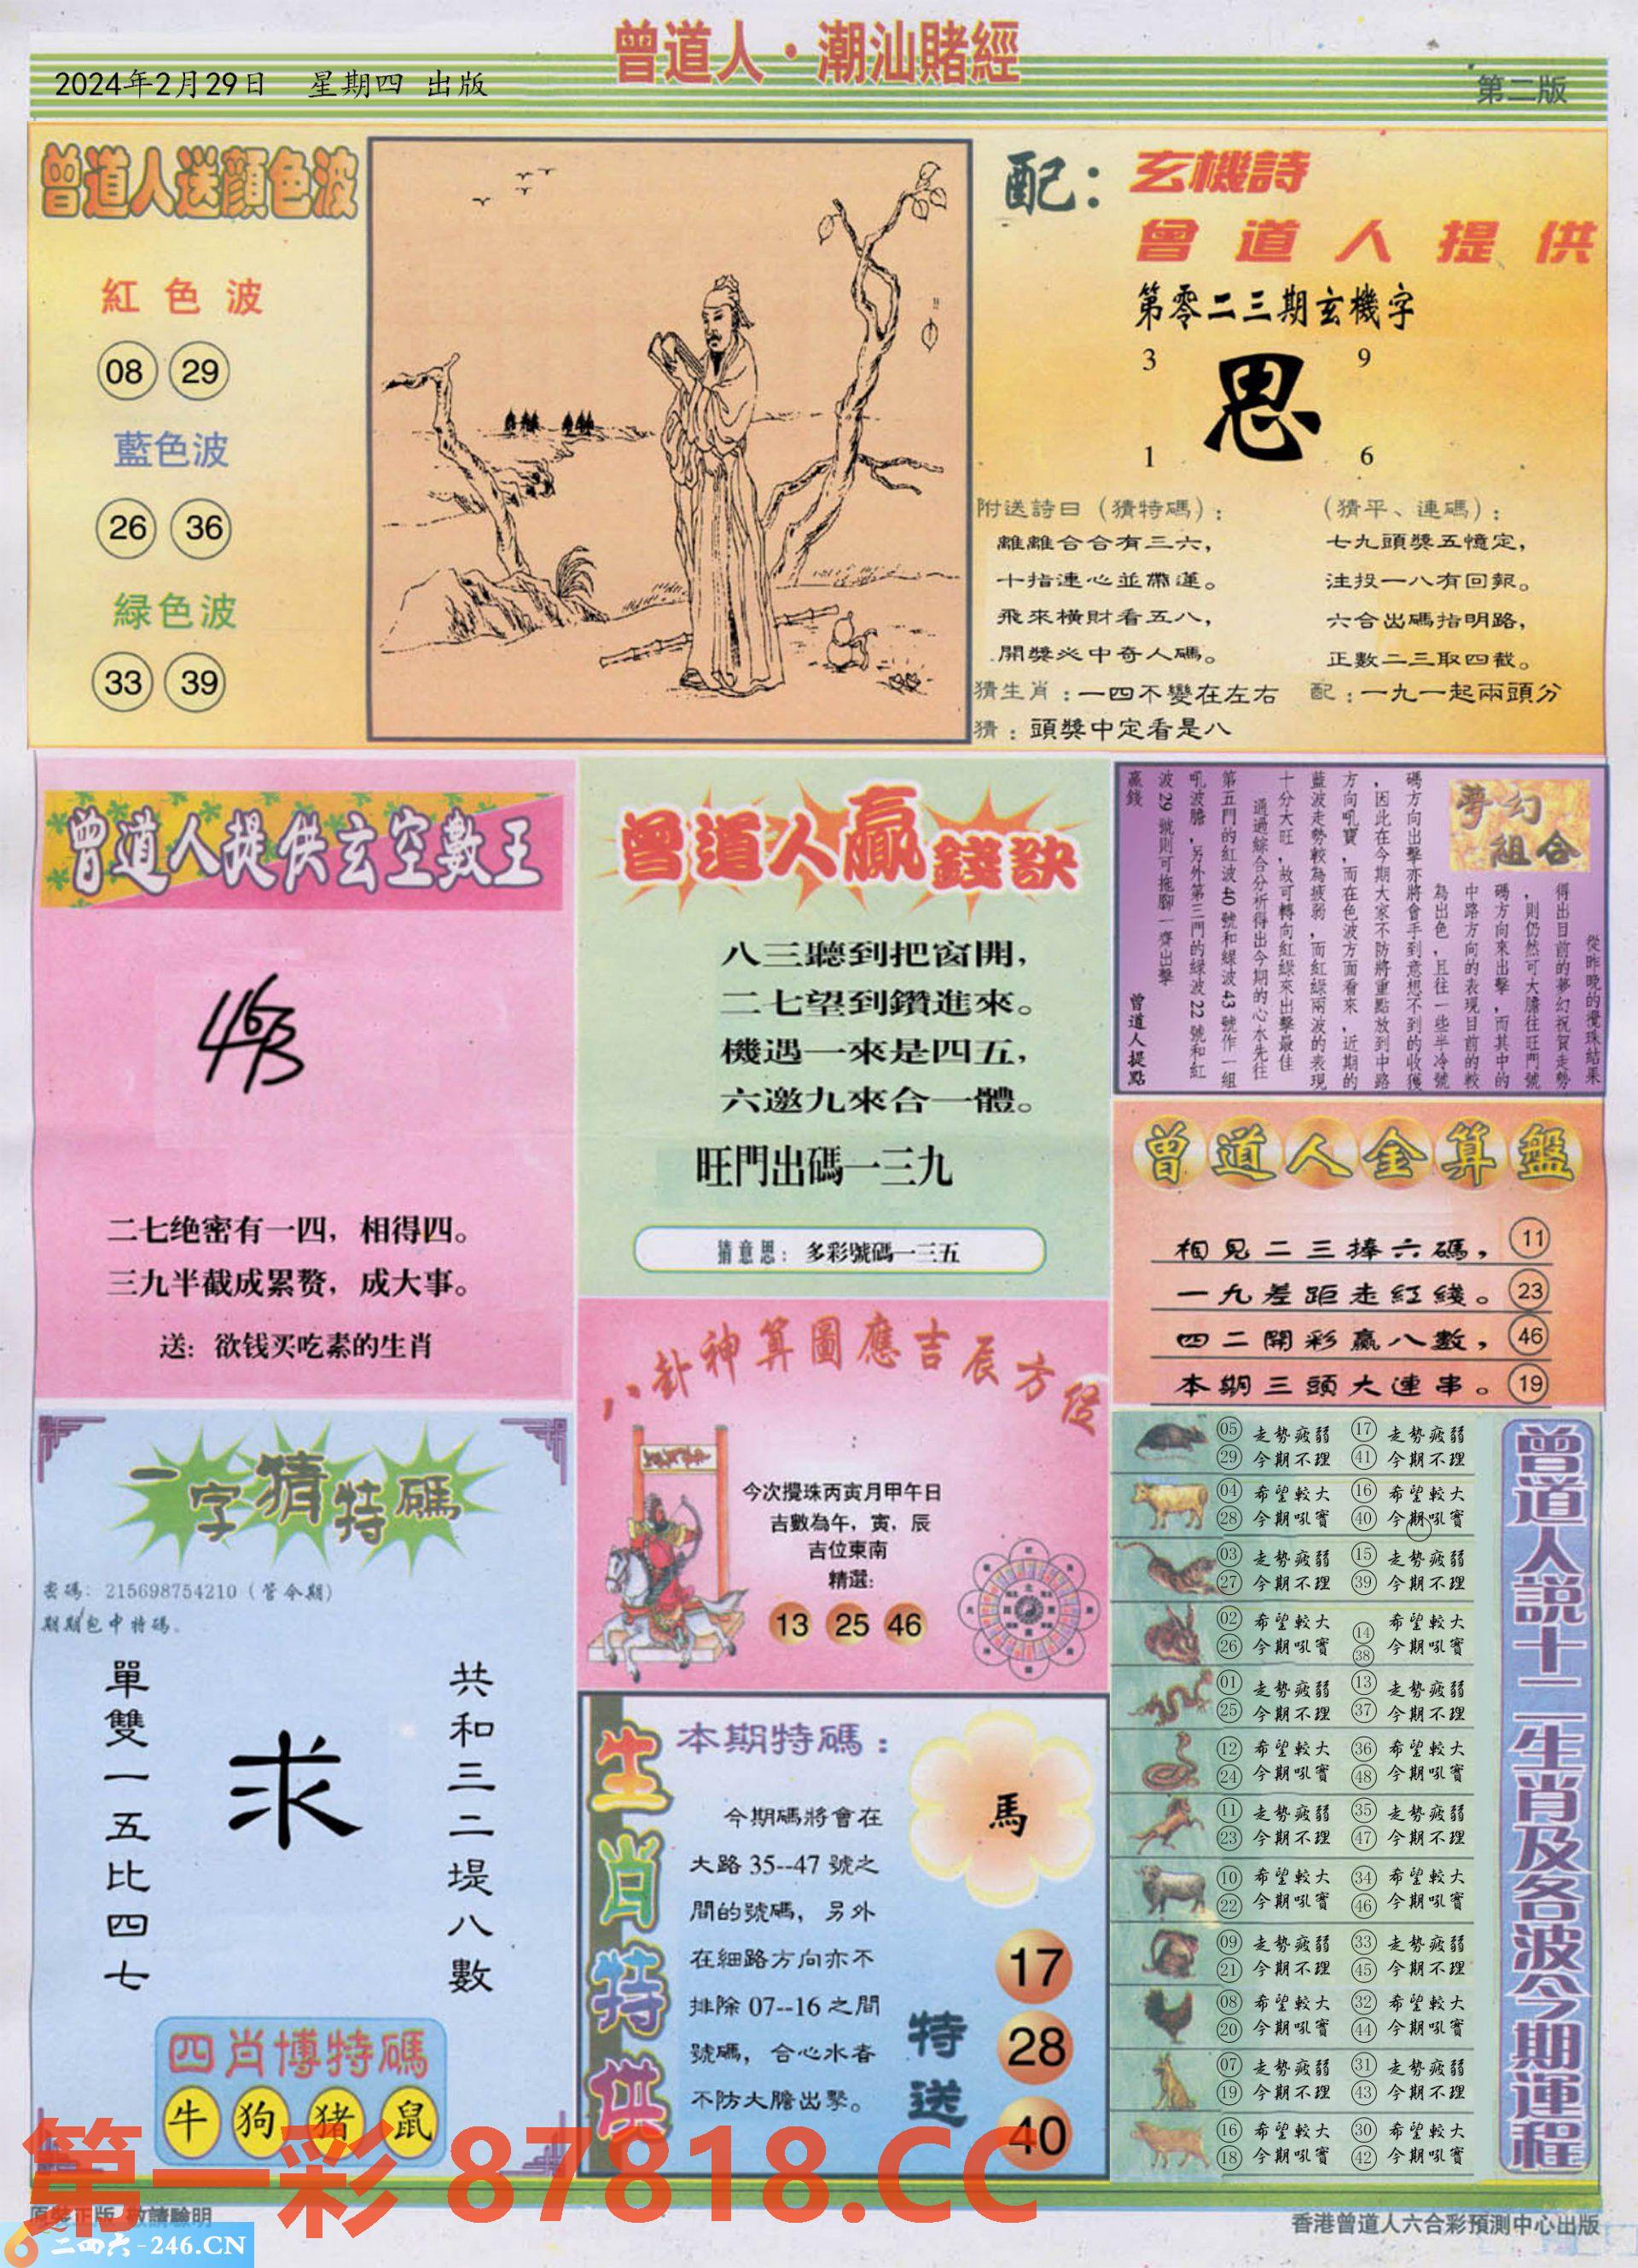 曾道人·潮汕賭經
2024年2月29日 星期四 出版
第二版
曾道人送顔色波
紅色波
08 29
藍色波
26 36
緑色波
33 39
配：
玄機詩
曾道人提供
第零二三期玄機字
3 9
思
1 6
附送詩曰（猜特碼）：
離離合合有三六，
十指連心並帶蓮。
飛來橫財看五八，
開獎必中奇人碼。
猜生肖：一四不變在左右
猜：頭獎中定看是八
（猜平、連碼）：
七九頭獎五憶定，
注投一八有回報。
六合出碼指明路，
正數二三取四截。
配：一九一起兩頭分
曾道人提供玄空數王
463
二七绝密有一四，相得四。
三九半截成累赘，成大事。
送：欲钱买吃素的生肖
曾道人贏錢訣
八三聽到把窗開，
二七望到鑽進來。
機遇一來是四五，
六邀九來合一體。
旺門出碼一三九
猜意思：多彩號碼一三五
夢幻組合
從昨晚的攪珠結果
得出目前的夢幻祝賀走勢
，則仍然可大膽往旺門號
碼方向來出擊，而其中的
中路方向的表現目前的較
為出色，且往一些半冷號
碼方向出擊亦將會手到意想不到的收獲
，因此在今期大家不防將重點放到中路
方向吼寶，而在色波方面看來，近期的
藍波走勢較為疲弱，而紅緑兩波的表現
十分大旺，故可轉向紅緑來出擊最佳
通過綜合分析得出今期的心水先往
第五門的紅波40號和緑波43號作一組
吼波膽，另外第三門的緑波22號和紅
波29號則可拖腳一齊出擊
贏錢
曾道人提點
曾道人金算盤
相見二三捧六碼， 11
一九差距走紅綫。 23
四二開彩贏八數， 46
本期三頭大連串。 19
八卦神算圖應吉辰方位
今次攪珠丙寅月甲午日
吉數為午，寅，辰
吉位東南
精選：
13 25 46
一字猜特碼
密碼：215698754210（管今期）
期期包中特碼。
單雙一五比四七
求
共和三二堤八數
四肖博特碼
牛 狗 猪 鼠
生肖特供
本期特碼：
馬
今期碼將會在
大路35--47號之
間的號碼，另外
在細路方向亦不
排除07--16之間
號碼，合心水者
不防大膽出擊。
特送
17
28
40
曾道人說十二生肖及各波今期運程
05 走勢疲弱 17 走勢疲弱
29 今期不理 41 今期不理
04 希望較大 16 希望較大
28 今期吼寶 40 今期吼寶
03 走勢疲弱 15 走勢疲弱
27 今期不理 39 今期不理
02 希望較大 14 希望較大
26 今期吼寶 38 今期吼寶
01 走勢疲弱 13 走勢疲弱
25 今期不理 37 今期不理
12 希望較大 36 希望較大
24 今期吼寶 48 今期吼寶
11 走勢疲弱 35 走勢疲弱
23 今期不理 47 今期不理
10 希望較大 34 希望較大
22 今期吼寶 46 今期吼寶
09 走勢疲弱 33 走勢疲弱
21 今期不理 45 今期不理
08 希望較大 32 希望較大
20 今期吼寶 44 今期吼寶
07 走勢疲弱 31 走勢疲弱
19 今期不理 43 今期不理
16 希望較大 30 希望較大
18 今期吼寶 42 今期吼寶
第一彩 87818.CC
原裝正版 敬請驗明
二四六-246.CN
香港曾道人六合彩預測中心出版